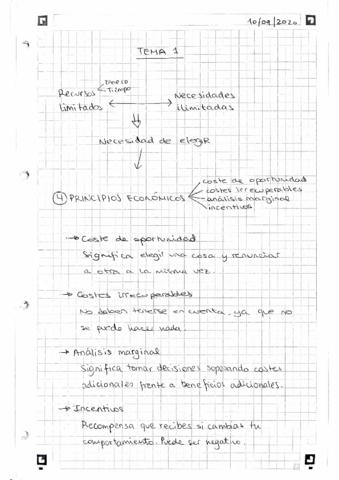 10/09/2020
TEMA 1
Dinero
Recursos Tiempo
limitados
Necesidades
ilimitadas
Necesidad de elegir
4 PRINCIPIOS ECONÓMICOS
coste de oportunidad
costes irrecuperables
análisis marginal
incentivos
→ Coste de oportunidad
Significa elegir una cosa y renunciar
a otra a la misma vez.
→ Costes irrecuperables
No deben tenerse en cuenta, ya que no
se puede hacer nada.
→ Análisis marginal
Significa tomar decisiones sopesando costes
adicionales frente a beneficios adicionales.
→ Incentivos
Recompensa que recibes si cambias tu
comportamiento. Puede ser negativo.